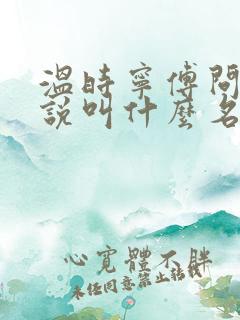 溫時寧傅問
說叫什麼名
心寬體不胖
未經同意禁止轉載